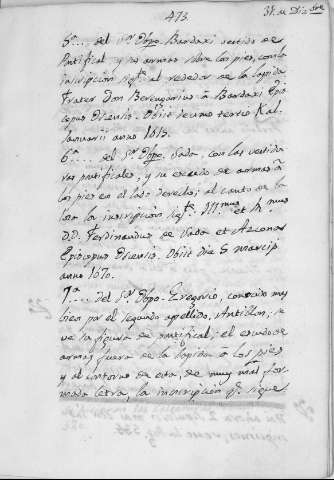 473.
31. de Dizbre
5ª.... del Sr. Obpo. Bardaxi vestido de
Pontifical y sus armas sobre los pies, con la
inscripcion sigte. al rededor de la lapida
Frater Don Berengarius à Bardaxi Epis
copus Oscensis. Obiit decimo tertio Kal.
Januarii anno 1615.
6ª.... del Sr. Obpo. Sada, con las vestidu
ras pontificales, y su escudo de armas à
los pies en el lado derecho; al canto de la
losa la inscripcion sigte. Illmus. et R.mus
D.D. Ferdinandus de Sada et Azcona
Episcopus Oscensis. Obiit die 5 marcij
anno 1670.
7ª.... del Sr. Obpo. Gregorio, conocido muy
bien por el segundo apellido, Antillon; se
ve la figura de pontifical; el escudo de
armas fuera de la lapida à los pies
y al contorno de esta, de muy mal for
mada letra, la inscripcion qe. sigue